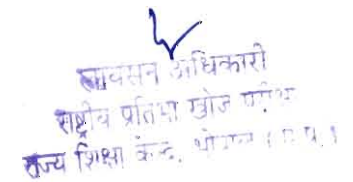 अधिकारी
राष्ट्रीय प्रतिभा खोज परीक्षा
राज्य शिक्षा केन्द्र, भोपाल (म.प्र.)